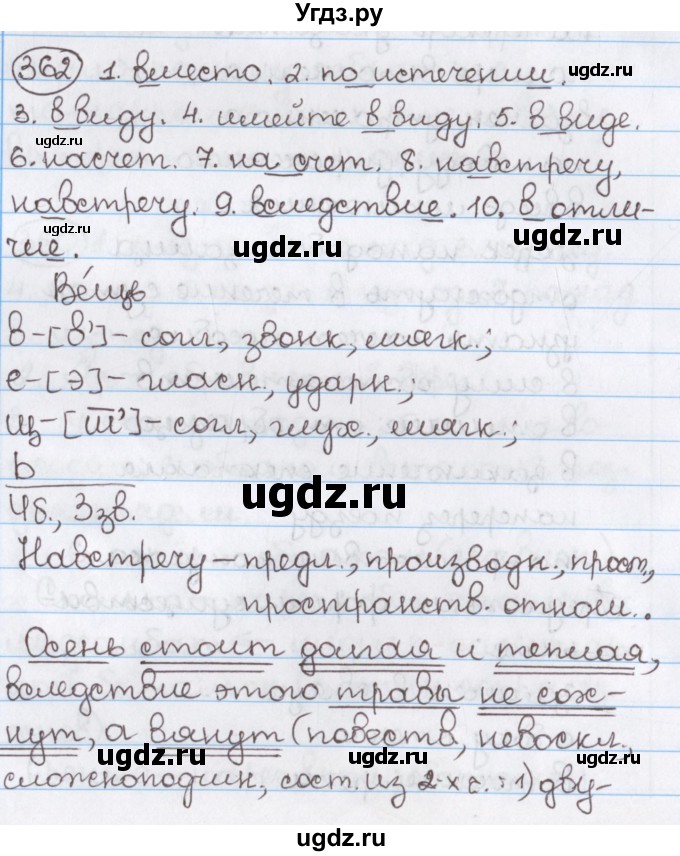 Угдз.ру
362 1. вместо. 2. по истечении.
3. в виду. 4. имейте в виду. 5. в виде.
6. насчет. 7. на счет. 8. навстречу,
навстречу. 9. вследствие. 10. в отли-
чие.
Ве́щь
в-[в']- согл., звонк., мягк.;
е-[э]- гласн., ударн.;
щ-[ш']- согл., глух., мягк.;
ь
4б., 3зв.
Навстречу - предл., производн., прост.,
пространств. отнош..
Осень стоит долгая и теплая,
вследствие этого травы не сох-
нут, а вянут (повеств., невоскл.,
сложноподчин., сост. из 2х с. 1) дву-
ugdz.ru
ugdz.ru
ugdz.ru
ugdz.ru
ugdz.ru
ugdz.ru
ugdz.ru
ugdz.ru
ugdz.ru
ugdz.ru
ugdz.ru